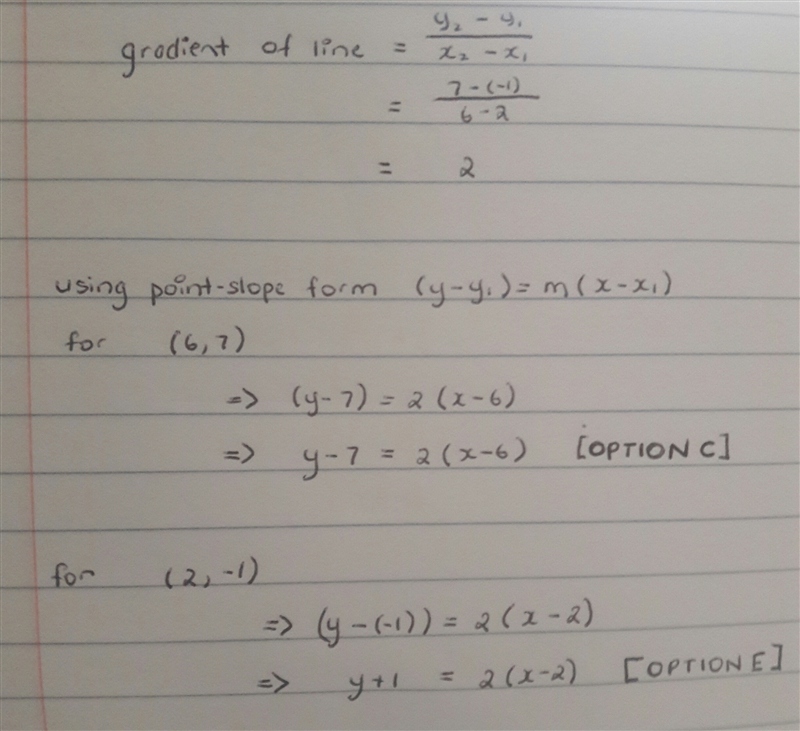 gradient of line = y₂ - y₁ / x₂ - x₁
= 7-(-1) / 6-2
= 2
using point-slope form (y-y₁) = m(x-x₁)
for (6,7)
=> (y-7) = 2(x-6)
=> y-7 = 2(x-6) [OPTION C]
for (2,-1)
=> (y-(-1)) = 2(x-2)
=> y+1 = 2(x-2) [OPTION E]